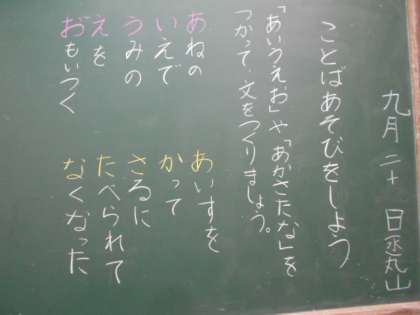 九月 二十 日 丸山
ことばあそびをしよう
「あいうえお」や「あかさたな」を
つかって、文をつくりましょう。
あねの
いえで
うみの
えを
おもいつく
あいすを
かって
さるに
たべられて
なくなった